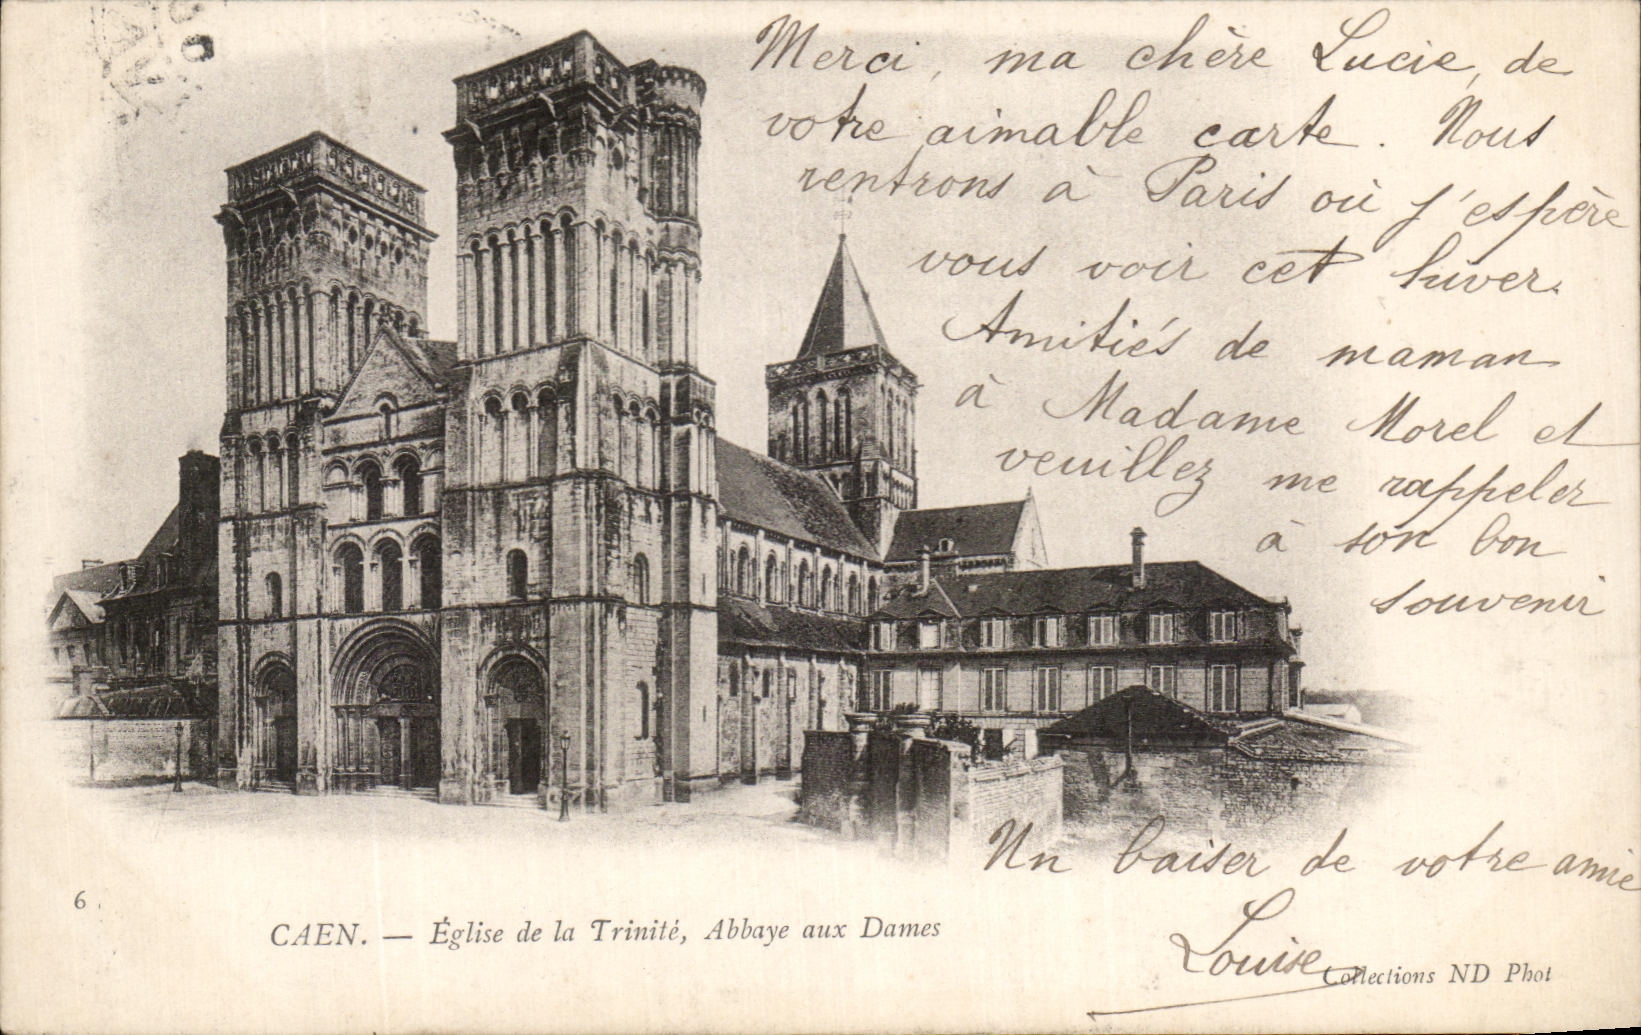 Merci, ma chère Lucie, de
votre aimable carte. Nous
rentrons à Paris où j'espère
vous voir cet hiver.
Amitiés de maman
à Madame Morel et
veuillez me rappeler
à son bon
souvenir
Un baiser de votre amie
Louise
6
CAEN. — Église de la Trinité, Abbaye aux Dames
Collections ND Phot